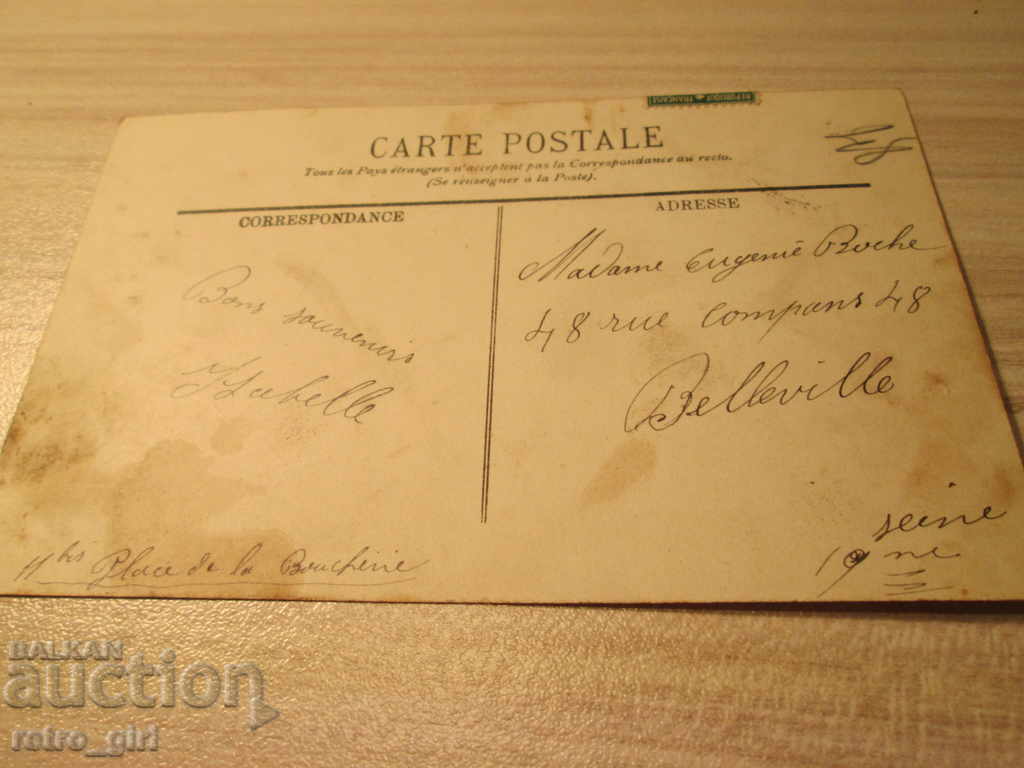 REPUBLIQUE FRANCAISE
CARTE POSTALE
Tous les Pays étrangers n'acceptent pas la Correspondance au recto.
(Se renseigner à la Poste).
CORRESPONDANCE
Bons souvenirs
Isabelle
11bis Place de la Boucherie
ADRESSE
Madame Eugenie Roche
48 rue Compans 48
Belleville
seine
19me
BALKAN
auction
retro_girl